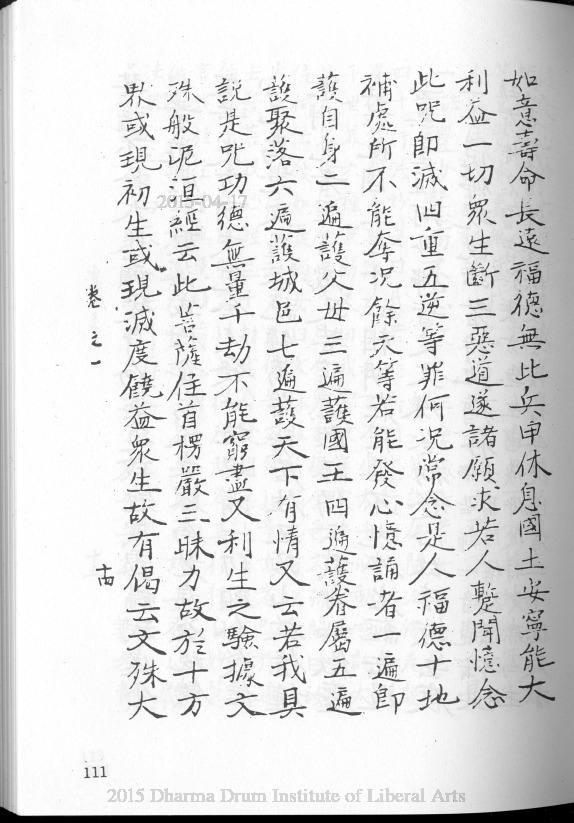 如意壽命長遠福德無比兵甲休息國土安寧能大
利益一切眾生斷三惡道遂諸願求若人蹔聞憶念
此咒即滅四重五逆等罪何況常念是人福德十地
補處所不能奪況餘天等若能發心憶誦者一遍即
護自身二遍護父母三遍護國王四遍護眷屬五遍
護聚落六遍護城邑七遍護天下有情又云若我具
說是咒功德無量千劫不能窮盡又利生之驗據文
殊般泥洹經云此菩薩住首楞嚴三昧力故於十方
界或現初生或現滅度饒益眾生故有偈云文殊大
卷之一
十四
111
2015-04-17
2015 Dharma Drum Institute of Liberal Arts